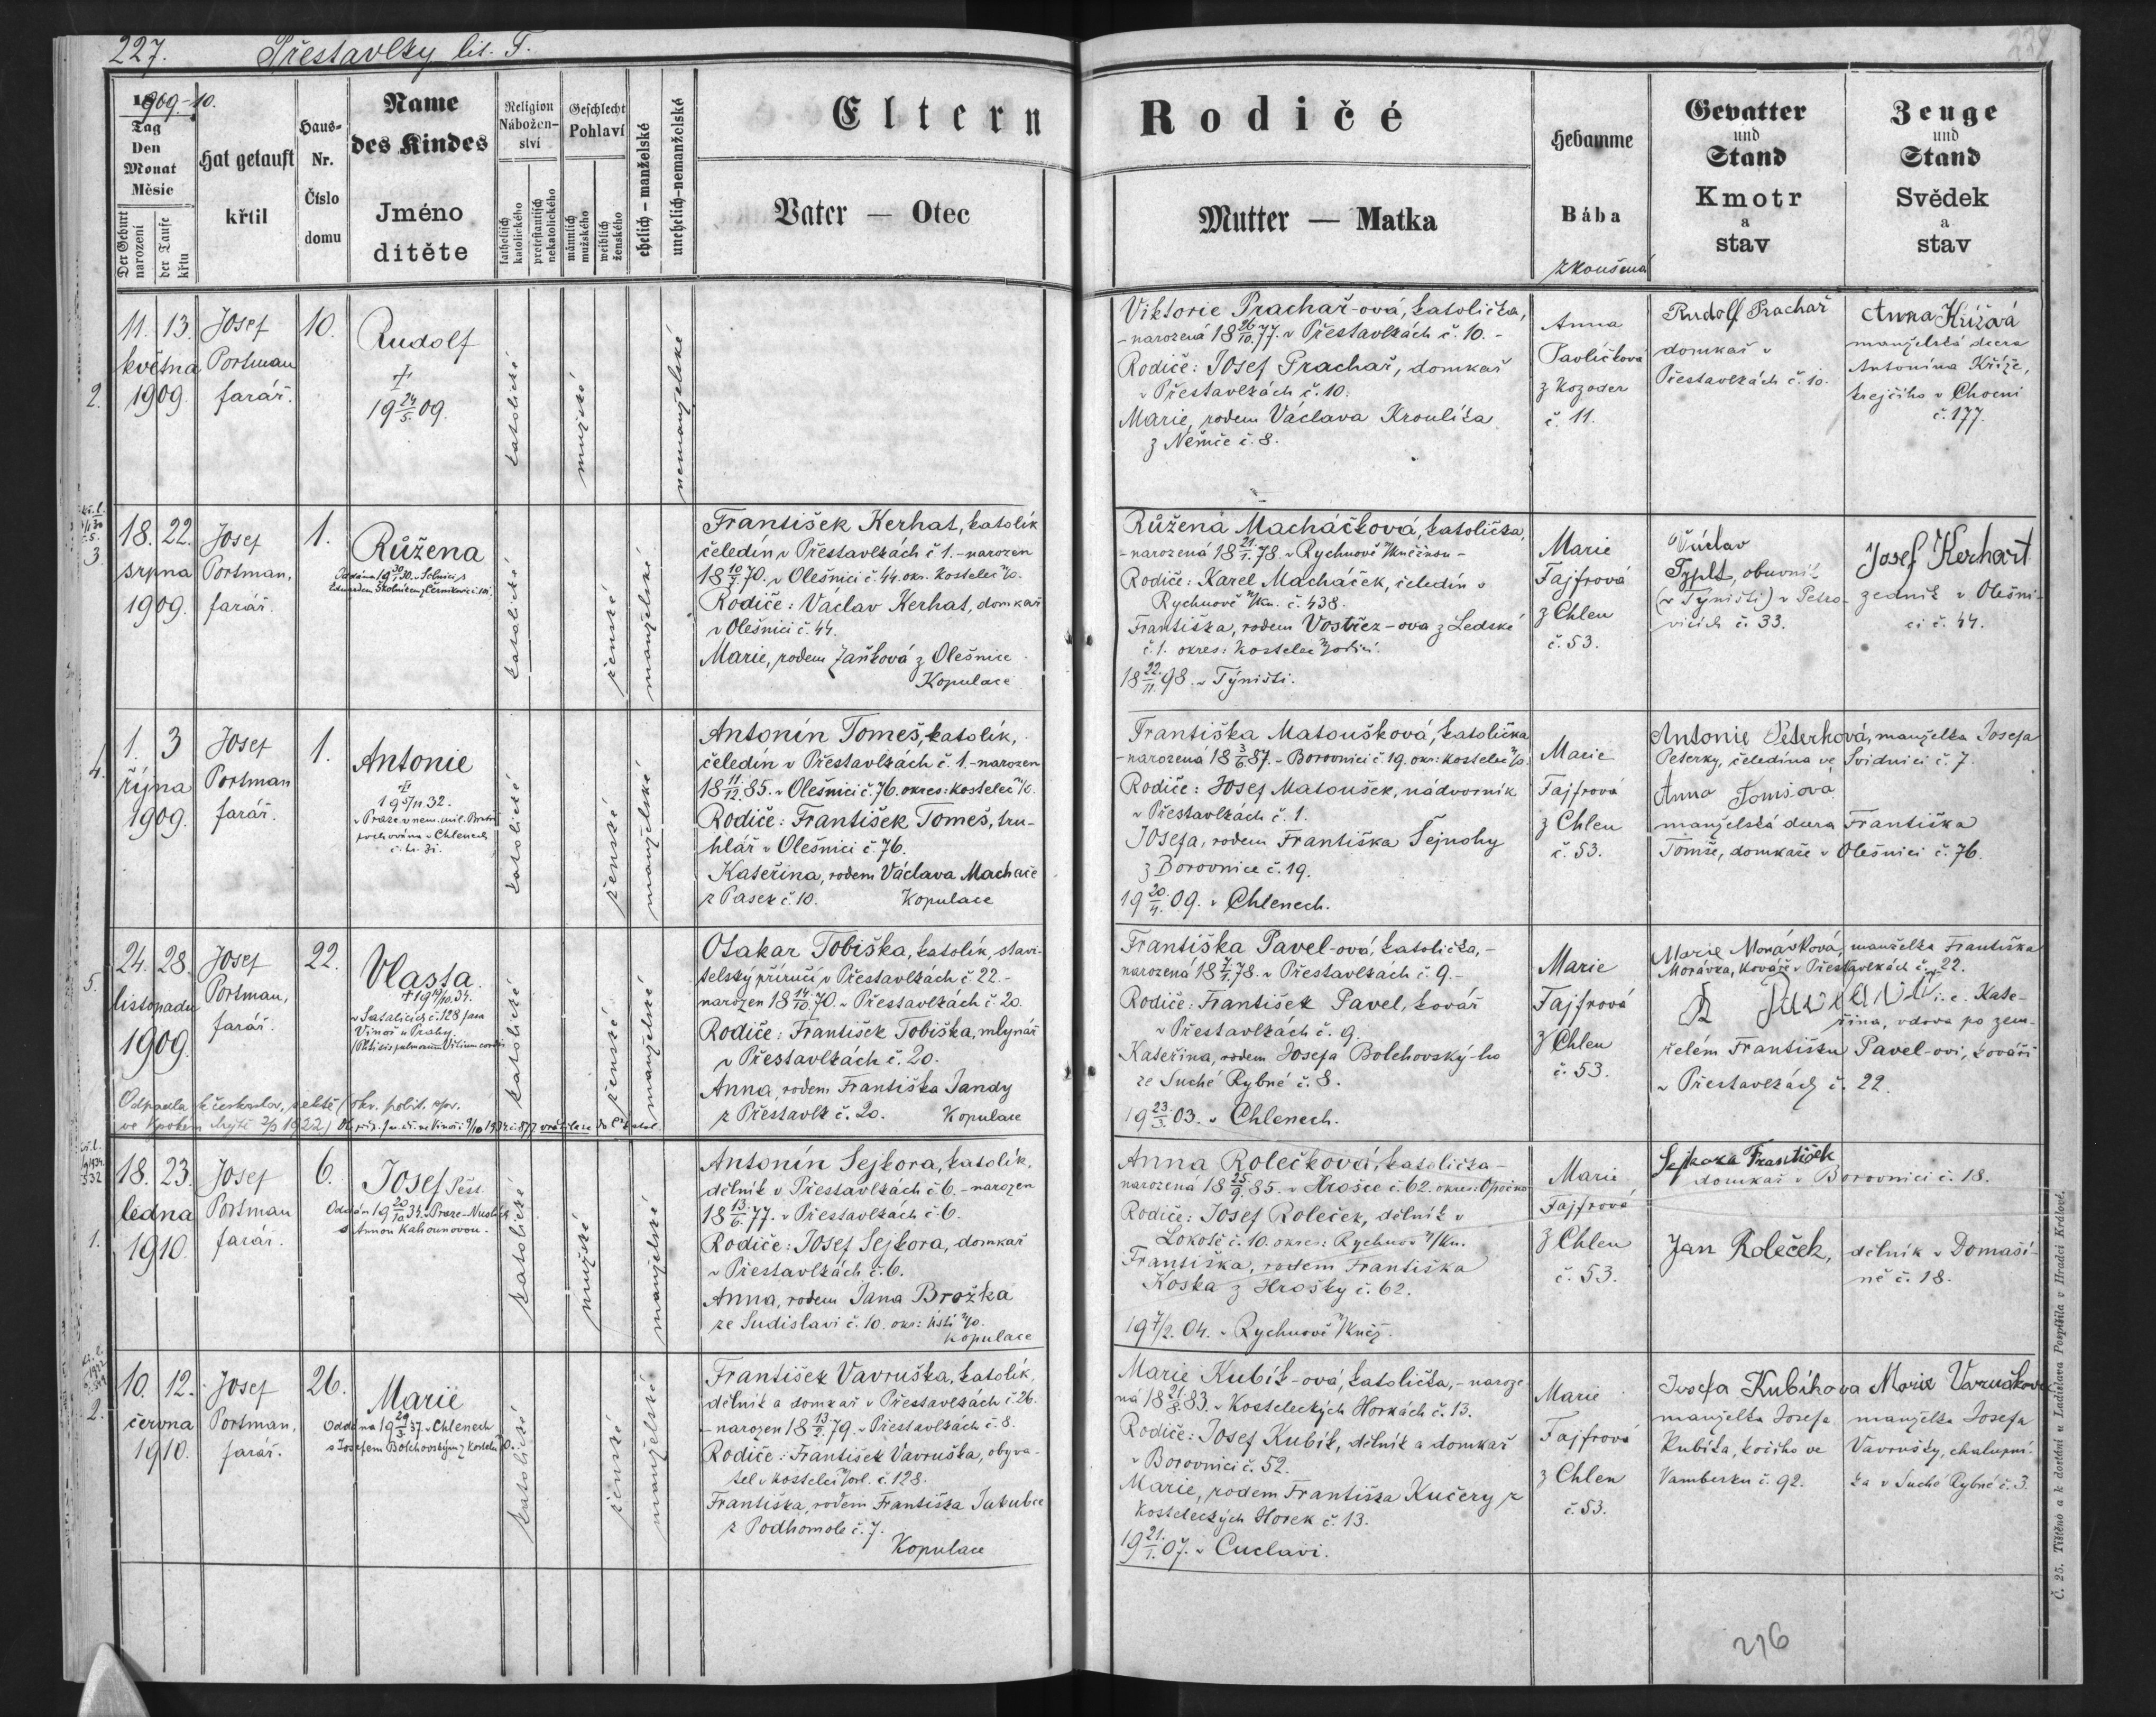 227. Přestavlky lit. F.
1909-10.
Tag
Den
Monat
Měsíc
Der Geburt
narození
der Taufe
křtu
Hat getauft
křtil
Haus-
Nr.
Číslo
domu
Name
des Kindes
Jméno
dítěte
Religion
Nábožen-
ství
katholisch
katolického
protestantisch
nekatolického
Geschlecht
Pohlaví
männlich
mužského
weiblich
ženského
ehelich – manželské
unehelich-nemanželské
Eltern
Rodičé
Vater — Otec
Mutter — Matka
Hebamme
Bába
zkoušená
Gevatter
und
Stand
Kmotr
a
stav
Zeuge
und
Stand
Svědek
a
stav
2.
11. 13.
května
1909.
Josef
Portman
farář.
10.
Rudolf
†
19 24/5. 09.
katolické
mužské
nemanželské
Viktorie Prachař-ová, katolička,
- narozená 18 26/10. 77. v Přestavlkách č. 10. -
Rodiče: Josef Prachař, domkař
v Přestavlkách č. 10.
Marie, rodem Václava Kroulíka
z Němče č. 8.
Anna
Pavlíčková
z Kozoder
č. 11.
Rudolf Prachař
domkař v
Přestavlkách č. 10.
Anna Křížová
manželská dcera
Antonína Kříže,
krejčího v Chocni
č. 177.
3.
18. 22.
srpna
1909.
Josef
Portman,
farář.
1.
Růžena
Oddána 19 30/1. 30. v Solnici s
Eduardem Školníkem z Černíkovic č. 101.
katolické
ženské
manželské
František Kerhat, katolík
čeledín v Přestavlkách č 1. - narozen
18 10/7. 70. v Olešnici č. 44. okr. Kostelec n/O.
Rodiče: Václav Kerhat, domkař
v Olešnici č. 44.
Marie, rodem Jaňková z Olešnice
Kopulace
Růžena Macháčková, katolička,
- narozená 18 21/1. 78. v Rychnově n/Kněžnou -
Rodiče: Karel Macháček, čeledín v
Rychnově n/Kn. č. 438.
Františka, rodem Vostřez-ova z Ledské
č. 1. okres: Kostelec n/Orlicí.
18 22/11. 98. v Týništi.
Marie
Fajfrová
z Chlen
č. 53.
Václav
Typlt, obuvník
(v Týništi) v Petro-
vicích č. 33.
Josef Kerhart
zedník v Olešni-
ci č. 44.
4.
1. 3
října
1909.
Josef
Portman
farář.
1.
Antonie
†
19 5/11. 32.
v Praze v nem. mil. Bratří
pochována v Chlenech
katolické
ženské
manželské
Antonín Tomeš, katolík,
čeledín v Přestavlkách č. 1. - narozen
18 11/12. 85. v Olešnici č. 76. okres: Kostelec n/O.
Rodiče: František Tomeš, tru-
hlář v Olešnici č. 76.
Kateřina, rodem Václava Macháče
z Pasek č. 10. Kopulace
Františka Matoušková, katolička
- narozená 18 3/6. 87. v Borovnici č. 19. okr: Kostelec n/O.
Rodiče: Josef Matoušek, nádvorník
v Přestavlkách č. 1.
Josefa, rodem Františka Šejnohy
z Borovnice č. 19.
19 20/4. 09. v Chlenech.
Marie
Fajfrová
z Chlen
č. 53.
Antonie Peterková, manželka Josefa
Peterky, čeledína ve Svidnici č. 7.
Anna Tomšova
manželská dcera Františka
Tomše, domkaře v Olešnici č. 76.
5.
24. 28.
listopadu
1909.
Josef
Portman,
farář.
22.
Vlasta
† 19 19/10. 34.
v Satalicích č. 128 fara
Vinoř u Prahy.
(Phtisis pulmonum Vitium cordis
katolické
ženské
manželské
Odpadla k českoslov. sektě (okr. polit. spr.
ve Vysokém Mýtě 2/9 1922)
Otakar Tobiška, katolík, stavi-
telský příručí v Přestavlkách č 22. -
narozen 18 14/10. 70. v Přestavlkách č. 20.
Rodiče: František Tobiška, mlynář
v Přestavlkách č. 20.
Anna, rodem Františka Jandy
z Přestavlk č. 20. Kopulace
Františka Pavel-ová, katolička, -
narozená 18 7/1. 78. v Přestavlkách č. 9. -
Rodiče: František Pavel, kovář
v Přestavlkách č. 9.
Kateřina, rodem Josefa Bolehovský-ho
ze Suché Rybné č. 8.
19 23/3. 03. v Chlenech.
Marie
Fajfrová
z Chlen
č. 53.
Marie Morávková, manželka Františka
Morávka, kováře v Přestavlkách č. 22.
i. e. Kate-
řina, vdova po zem-
řelém Františku Pavel-ovi, kováři
v Přestavlkách č. 22.
1.
18. 23.
ledna
1910.
Josef
Portman
farář.
6.
Josef Pěst.
Oddán 19 20/10. 34. v Praze-Nuslích
s Annou Kahounovou.
katolické
mužské
manželské
Antonín Sejkora, katolík,
dělník v Přestavlkách č 6. - narozen
18 13/6. 77. v Přestavlkách č 6.
Rodiče: Josef Sejkora, domkař
v Přestavlkách č. 6.
Anna, rodem Jana Brožka
ze Sudislavi č. 10. okr: Ústí n/O.
Kopulace
Anna Rolečková, katolička -
narozená 18 25/9. 85. v Hrošce č. 62. okres: Opočno
Rodiče: Josef Roleček, dělník v
Lokotě č. 10. okres: Rychnov n/Kn.
Františka, rodem Františka
Koska z Hrošky č. 62.
19 7/2. 04. v Rychnově n/Kněž.
Marie
Fajfrová
z Chlen
č. 53.
Sejkora František
domkař v Borovnici č. 18.
Jan Roleček, dělník v Domaší-
ně č. 18.
2.
10. 12.
června
1910.
Josef
Portman,
farář.
26.
Marie
Oddána 19 29/3. 37. v Chlenech
s Josefem Bolehovským z Kostelce n/O.
katolické
ženské
manželské
František Vavruška, katolík,
dělník a domkař v Přestavlkách č. 26.
- narozen 18 13/2. 79. v Přestavlkách č. 8.
Rodiče: František Vavruška, obyva-
tel v Kostelci n/Orl. č. 128.
Františka, rodem Františka Jakubce
z Podhomole č. 7.
Kopulace
Marie Kubík-ová, katolička, - naroze-
ná 18 21/8. 83. v Kosteleckých Horkách č. 13.
Rodiče: Josef Kubík, dělník a domkař
v Borovnici č. 52.
Marie, rodem Františka Kučery z
Kosteleckých Horek č. 13.
19 21/1. 07. v Cuclavi.
Marie
Fajfrová
z Chlen
č. 53.
Josefa Kubíkova
manželka Josefa
Kubíka, kočího ve
Vamberku č. 92.
Marie Vavrušková
manželka Josefa
Vavrušky, chalupní-
ka v Suché Rybné č. 3.
216
Č. 25. Tištěno a k dostání u Ladislava Pospíšila v Hradci Králové.